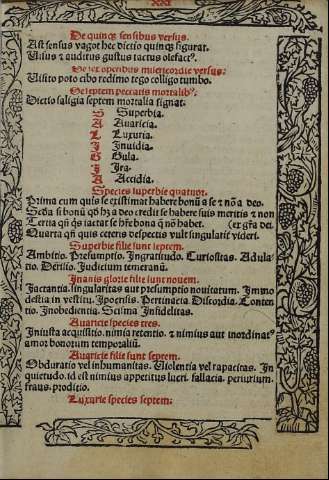 XXI
De quinqꝫ sensibus versus.
Ast sensus vagor hec dictio quinqꝫ figurat.
Visus ⁊ auditus gustus tactus olefactꝰ.
De sex operibus misericordie versus:
Visito poto cibo redimo tego colligo cumbo.
De septem peccatis mortalibꝰ.
Dictio saligia septem mortalia signat:
S Superbia.
A Auaricia.
L Luxuria.
I Inuidia.
G Gula.
I Ira.
A Accidia.
Species superbie quatuor.
Prima cum quis se existimat habere bonū a se ⁊ nō a deo.
Secūda si bonū qḋ hꝫ a deo credit se habere suis meritis ⁊ non
Tertia qn̄ qs iactat se hr̄e bona q̄ nō habet. (ex gr̄a dei.
Quarta qn̄ quis ceteris despectis vult singularit videri.
Superbie filie sunt septem.
Ambitio. Presumptio. Ingratitudo. Curiositas. Adula/
tio. Derisio. Iudicium temerariū.
Inanis glorie filie sunt nouem.
Jactantia. singularitas aut presumptio nouitatum. Immo
destia in vestitu. Ipocrisis. Pertinacia Discordia. Conten
tio. Inobedientia. Scisma Infidelitas.
Auaricie species tres.
Iniusta acquisitio. nimia retentio. ⁊ nimius aut inordinatꝰ
amor bonorum temporaliū.
Auaricie filie sunt septem.
Obduratio vel inhumanitas. Violentia vel rapacitas. In
quietudo. id est nimius appetitus lucri. fallacia. periurium.
fraus. proditio.
Luxurie species septem: